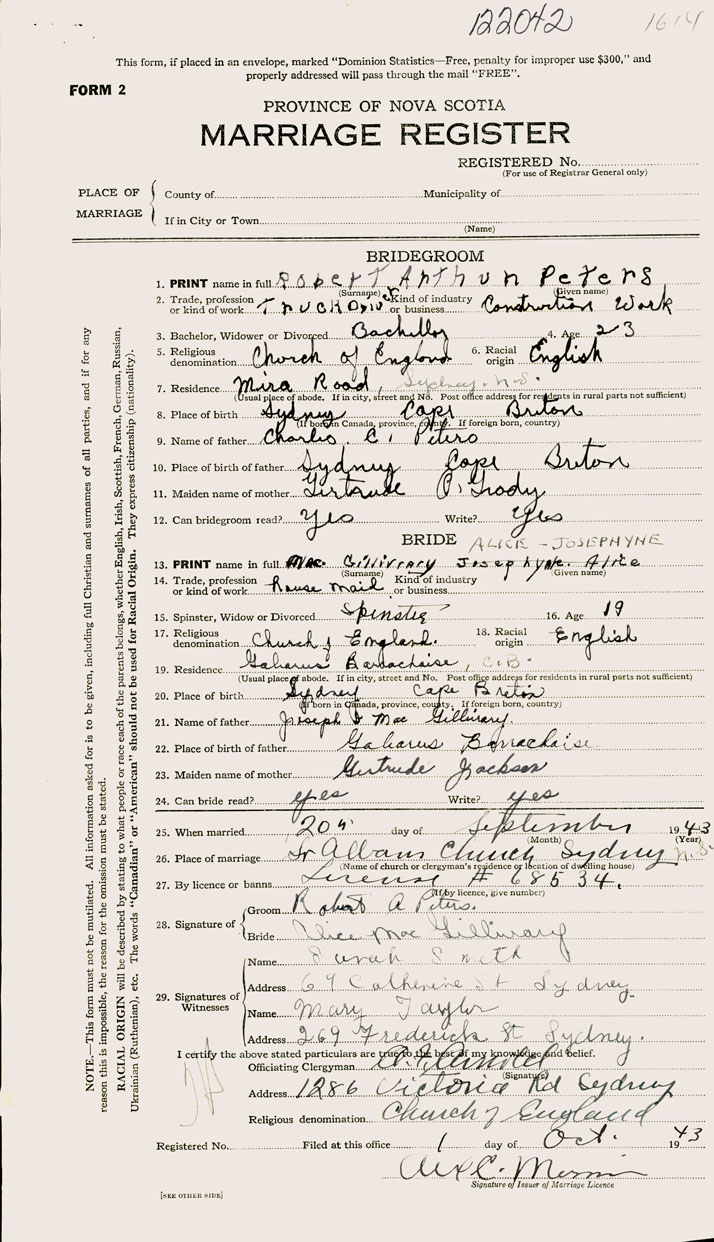 122042 1614
This form, if placed in an envelope, marked "Dominion Statistics—Free, penalty for improper use $300," and
properly addressed will pass through the mail "FREE".
FORM 2
PROVINCE OF NOVA SCOTIA
MARRIAGE REGISTER
REGISTERED No.
(For use of Registrar General only)
PLACE OF MARRIAGE
County of Municipality of
If in City or Town
(Name)
BRIDEGROOM
1. PRINT name in full Robert Arthur Peters
(Surname) (Given name)
2. Trade, profession or kind of work Truck Driver Kind of industry or business Construction Work
3. Bachelor, Widower or Divorced Bachellor 4. Age 23
5. Religious denomination Church of England 6. Racial origin English
7. Residence Mira Road, Sydney. N.S.
(Usual place of abode. If in city, street and No. Post office address for residents in rural parts not sufficient)
8. Place of birth Sydney Cape Briton
(If born in Canada, province, county. If foreign born, country)
9. Name of father Charlie C. Peters
10. Place of birth of father Sydney Cape Breton
11. Maiden name of mother Gertrude O'Grody
12. Can bridegroom read? Yes Write? Yes
BRIDE ALICE - JOSEPHYNE
13. PRINT name in full Mac. Gillivrary Josephyne. Alice
(Surname) (Given name)
14. Trade, profession or kind of work house maid Kind of industry or business
15. Spinster, Widow or Divorced Spinster 16. Age 19
17. Religious denomination Church of England. 18. Racial origin English
19. Residence Gabarus Barrachaise, C.B.
(Usual place of abode. If in city, street and No. Post office address for residents in rural parts not sufficient)
20. Place of birth Sydney Cape Breton
(If born in Canada, province, county. If foreign born, country)
21. Name of father Joseph Mac Gillivrary.
22. Place of birth of father Gabarus Barrachaise
23. Maiden name of mother Gertrude Jackson
24. Can bride read? yes Write? yes
25. When married 20th day of September 1943
(Month) (Year)
26. Place of marriage St Albans Church Sydney N.S.
(Name of church or clergyman's residence or location of dwelling house)
27. By licence or banns License # 68534.
(If by licence, give number)
28. Signature of
Groom Robert A Peters.
Bride Alice Mac Gillivrary
29. Signatures of Witnesses
Name Sarah Smith
Address 69 Catherine St Sydney.
Name Mary Taylor
Address 269 Frederick St Sydney.
I certify the above stated particulars are true to the best of my knowledge and belief.
Officiating Clergyman
(Signature)
Address 1286 Victoria Rd Sydney
Religious denomination Church of England
Registered No. Filed at this office 1 day of Oct. 1943
Signature of Issuer of Marriage Licence
[SEE OTHER SIDE]
NOTE.—This form must not be mutilated. All information asked for is to be given, including full Christian and surnames of all parties, and if for any
reason this is impossible, the reason for the omission must be stated.
RACIAL ORIGIN will be described by stating to what people or race each of the parents belongs, whether English, Irish, Scottish, French, German, Russian,
Ukrainian (Ruthenian), etc. The words "Canadian" or "American" should not be used for Racial Origin. They express citizenship (nationality).